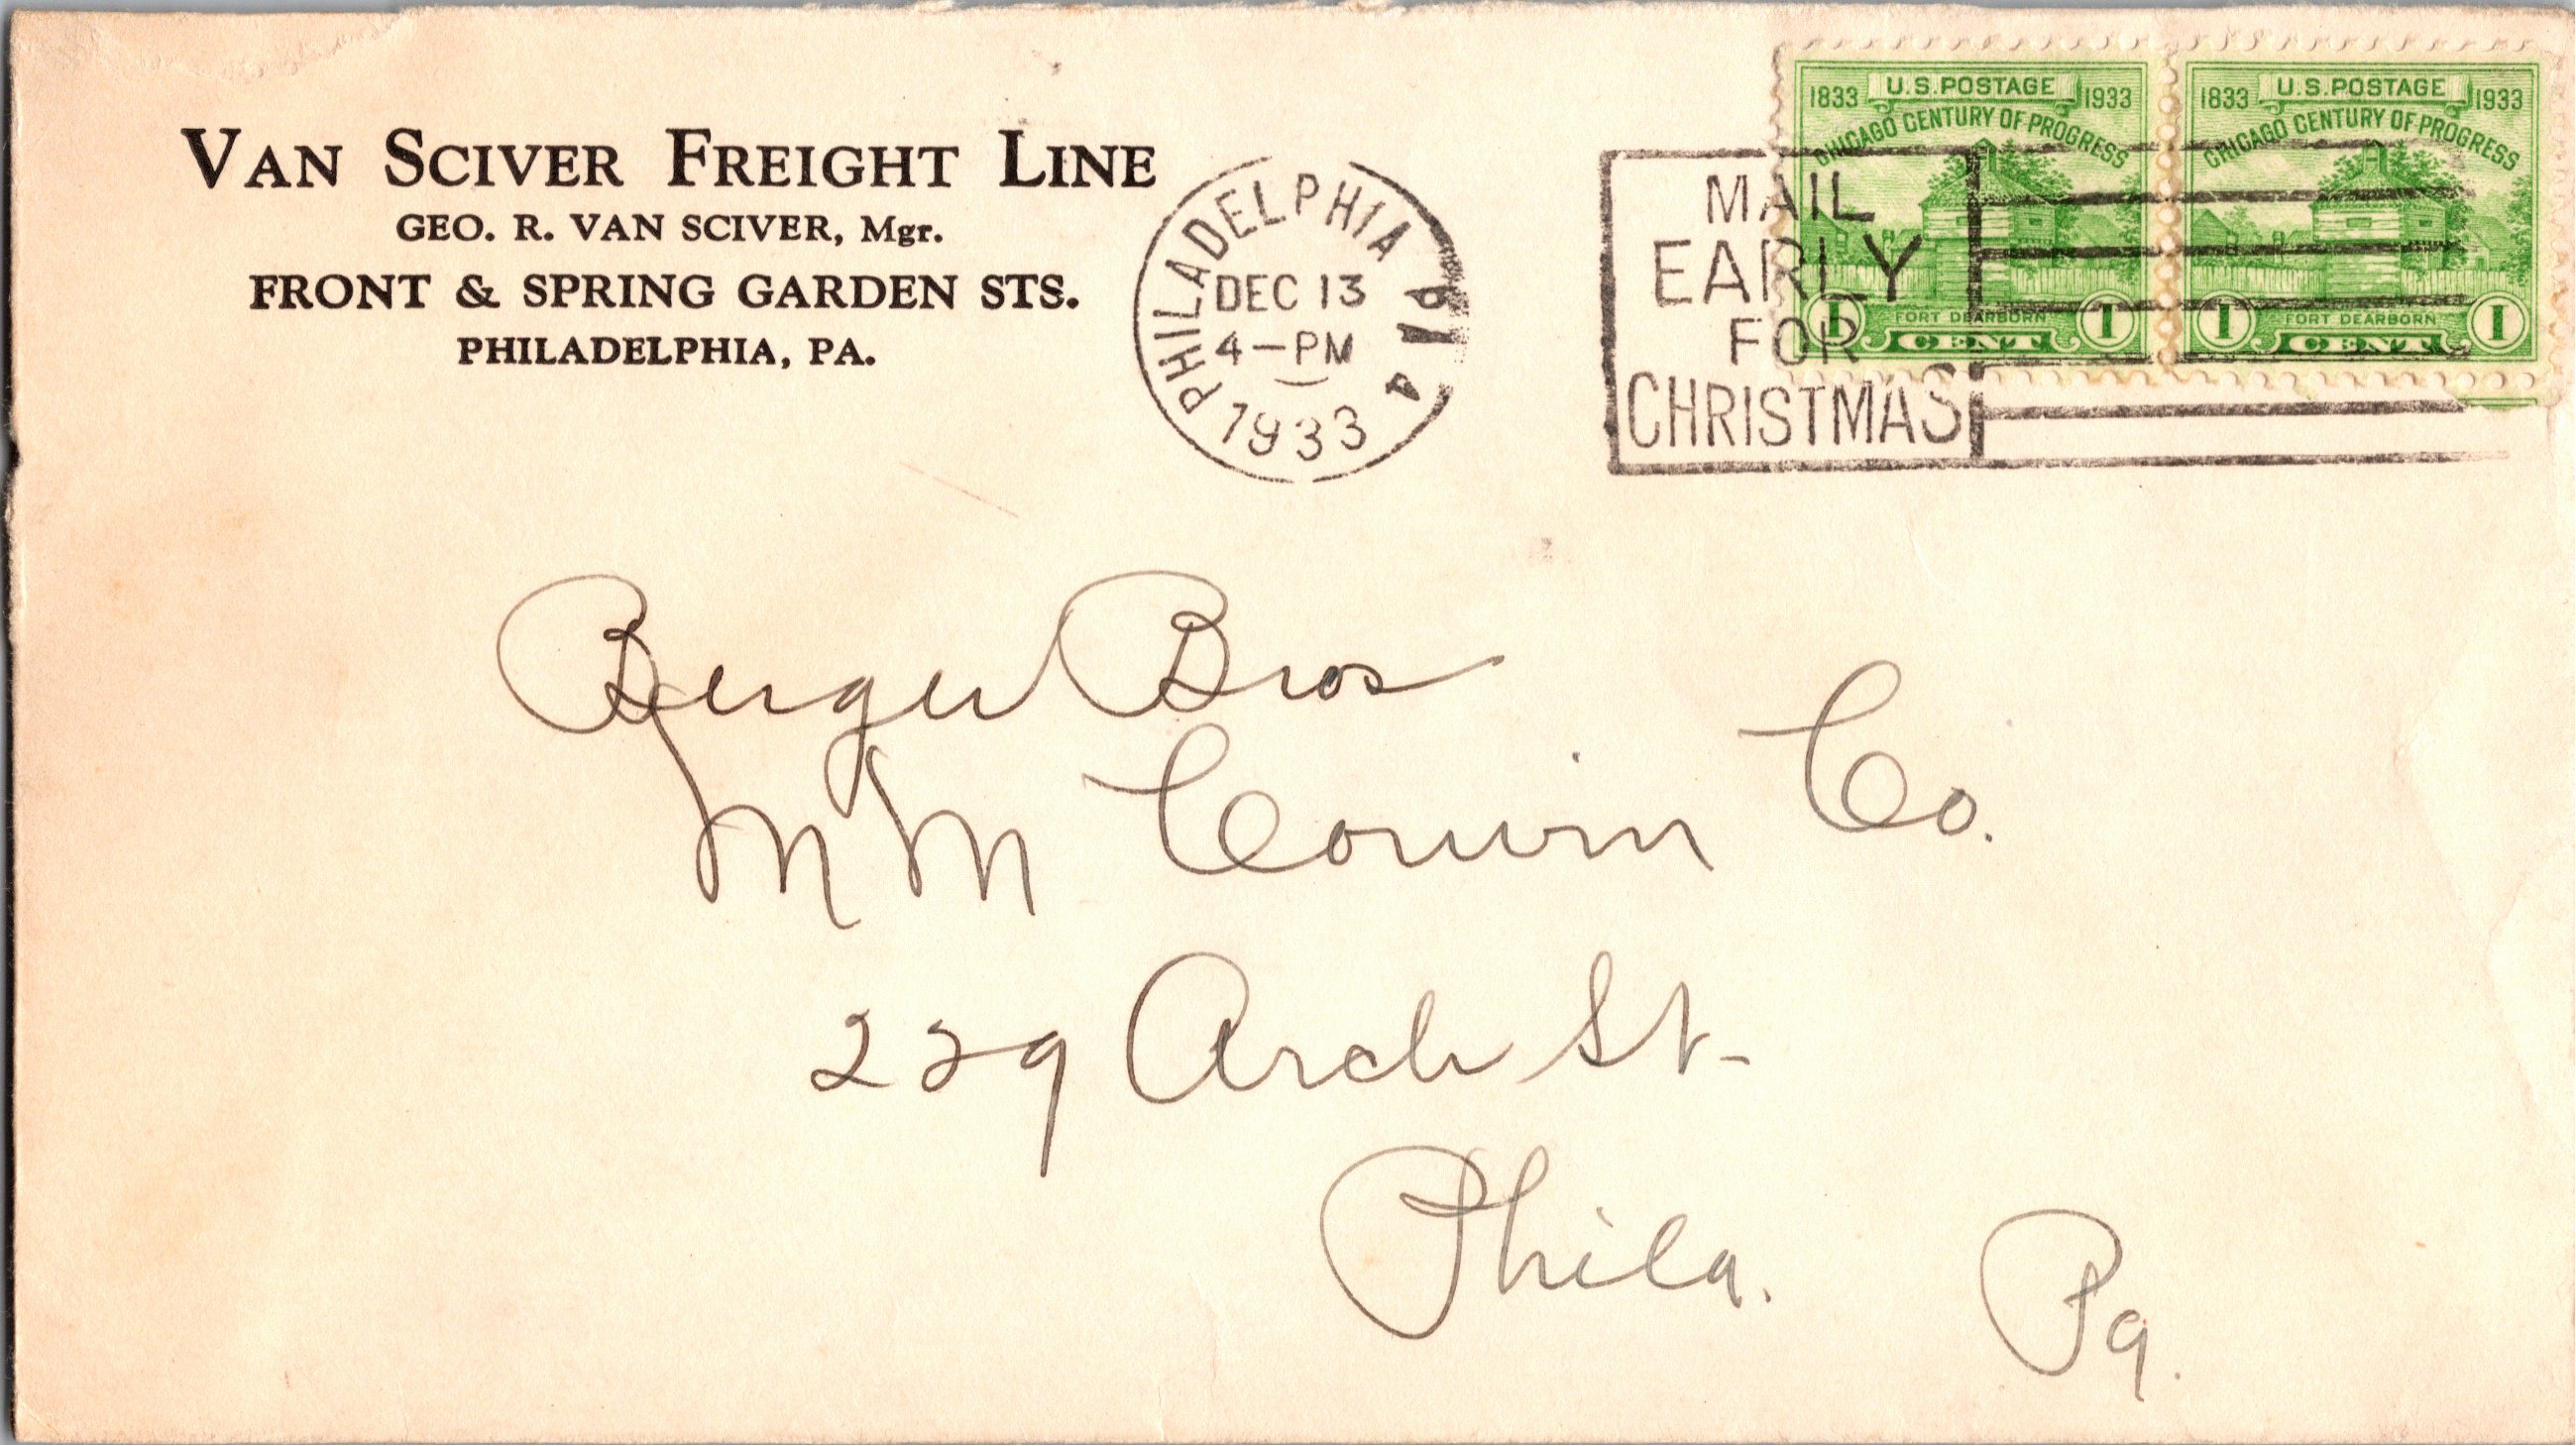 VAN SCIVER FREIGHT LINE
GEO. R. VAN SCIVER, Mgr.
FRONT & SPRING GARDEN STS.
PHILADELPHIA, PA.
PHILADELPHIA PA
DEC 13
4-PM
1933
MAIL
EARLY
FOR
CHRISTMAS
U.S.POSTAGE
1833 1933
CHICAGO CENTURY OF PROGRESS
FORT DEARBORN
1 CENT 1
U.S.POSTAGE
1833 1933
CHICAGO CENTURY OF PROGRESS
FORT DEARBORN
1 CENT 1
Berger Bros
M M Corwin Co.
229 Arch St-
Phila. Pa.